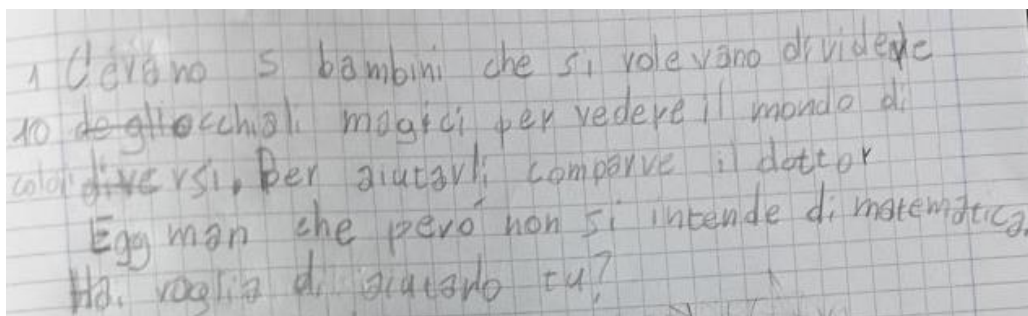 1 C'erano 5 bambini che si volevano dividere
10 degli occhiali magici per vedere il mondo di
colori diversi. Per aiutarli comparve il dottor
Egg man che però non si intende di matematica.
Hai voglia di aiutarlo tu?